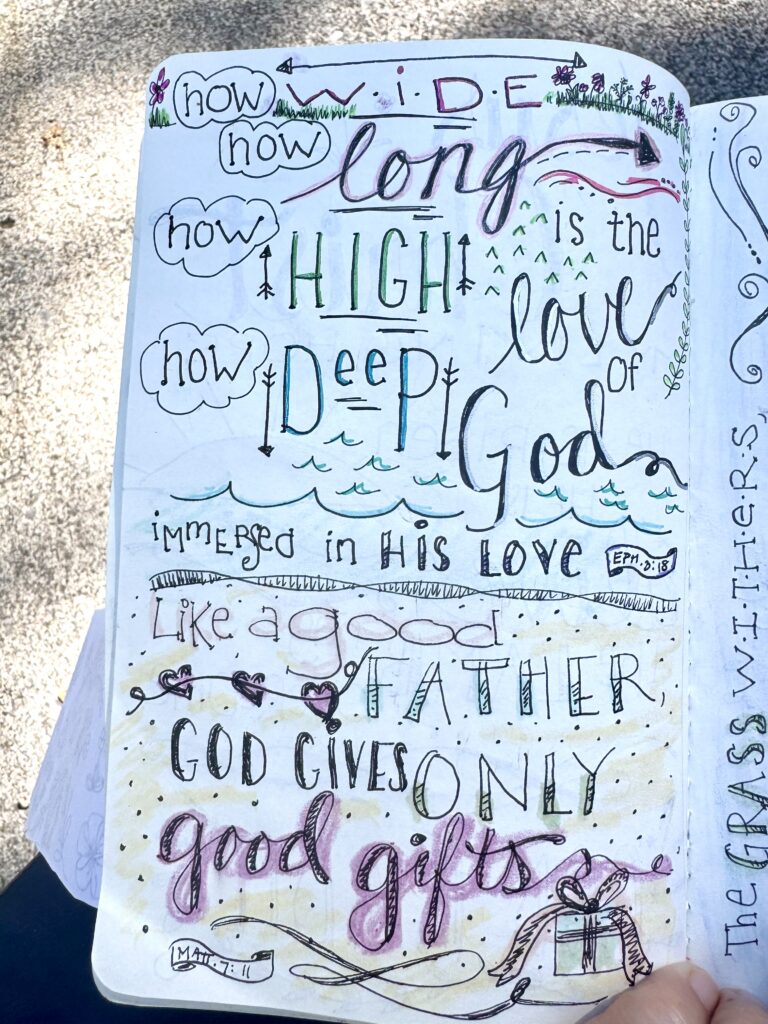 how W·I·D·E
how long
how HIGH
how Deep
is the
love
of
God
immersed in His Love EPH. 3:18
Like a good
FATHER,
GOD GIVES ONLY
good gifts
Matt. 7:11
The GRASS W·I·T·H·E·R·S,